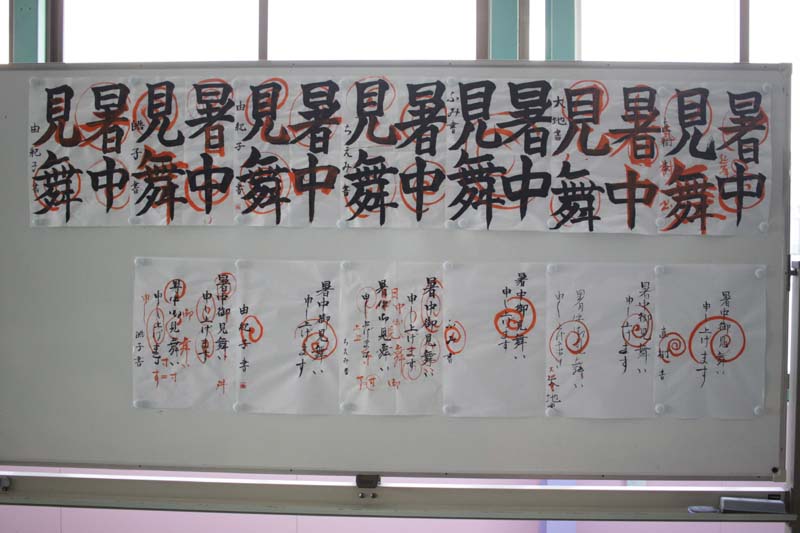 暑中
見舞
暑中
見舞
大地書
暑中
見舞
ふみ書
暑中
見舞
ちえみ書
暑中
見舞
由紀子書
暑中
見舞
暑中
見舞
由紀子書
暑中御見舞い
申し上げます
暑中御見舞い
申し上げます
暑中御見舞い
申し上げます
暑中御見舞い
申し上げます
ふみ書
暑中御見舞い
申し上げます
暑中御見舞い
申し上げます
ちえみ書
暑中御見舞い
申し上げます
由紀子書
暑中御見舞い
申し上げます
暑中御見舞い
申し上げます